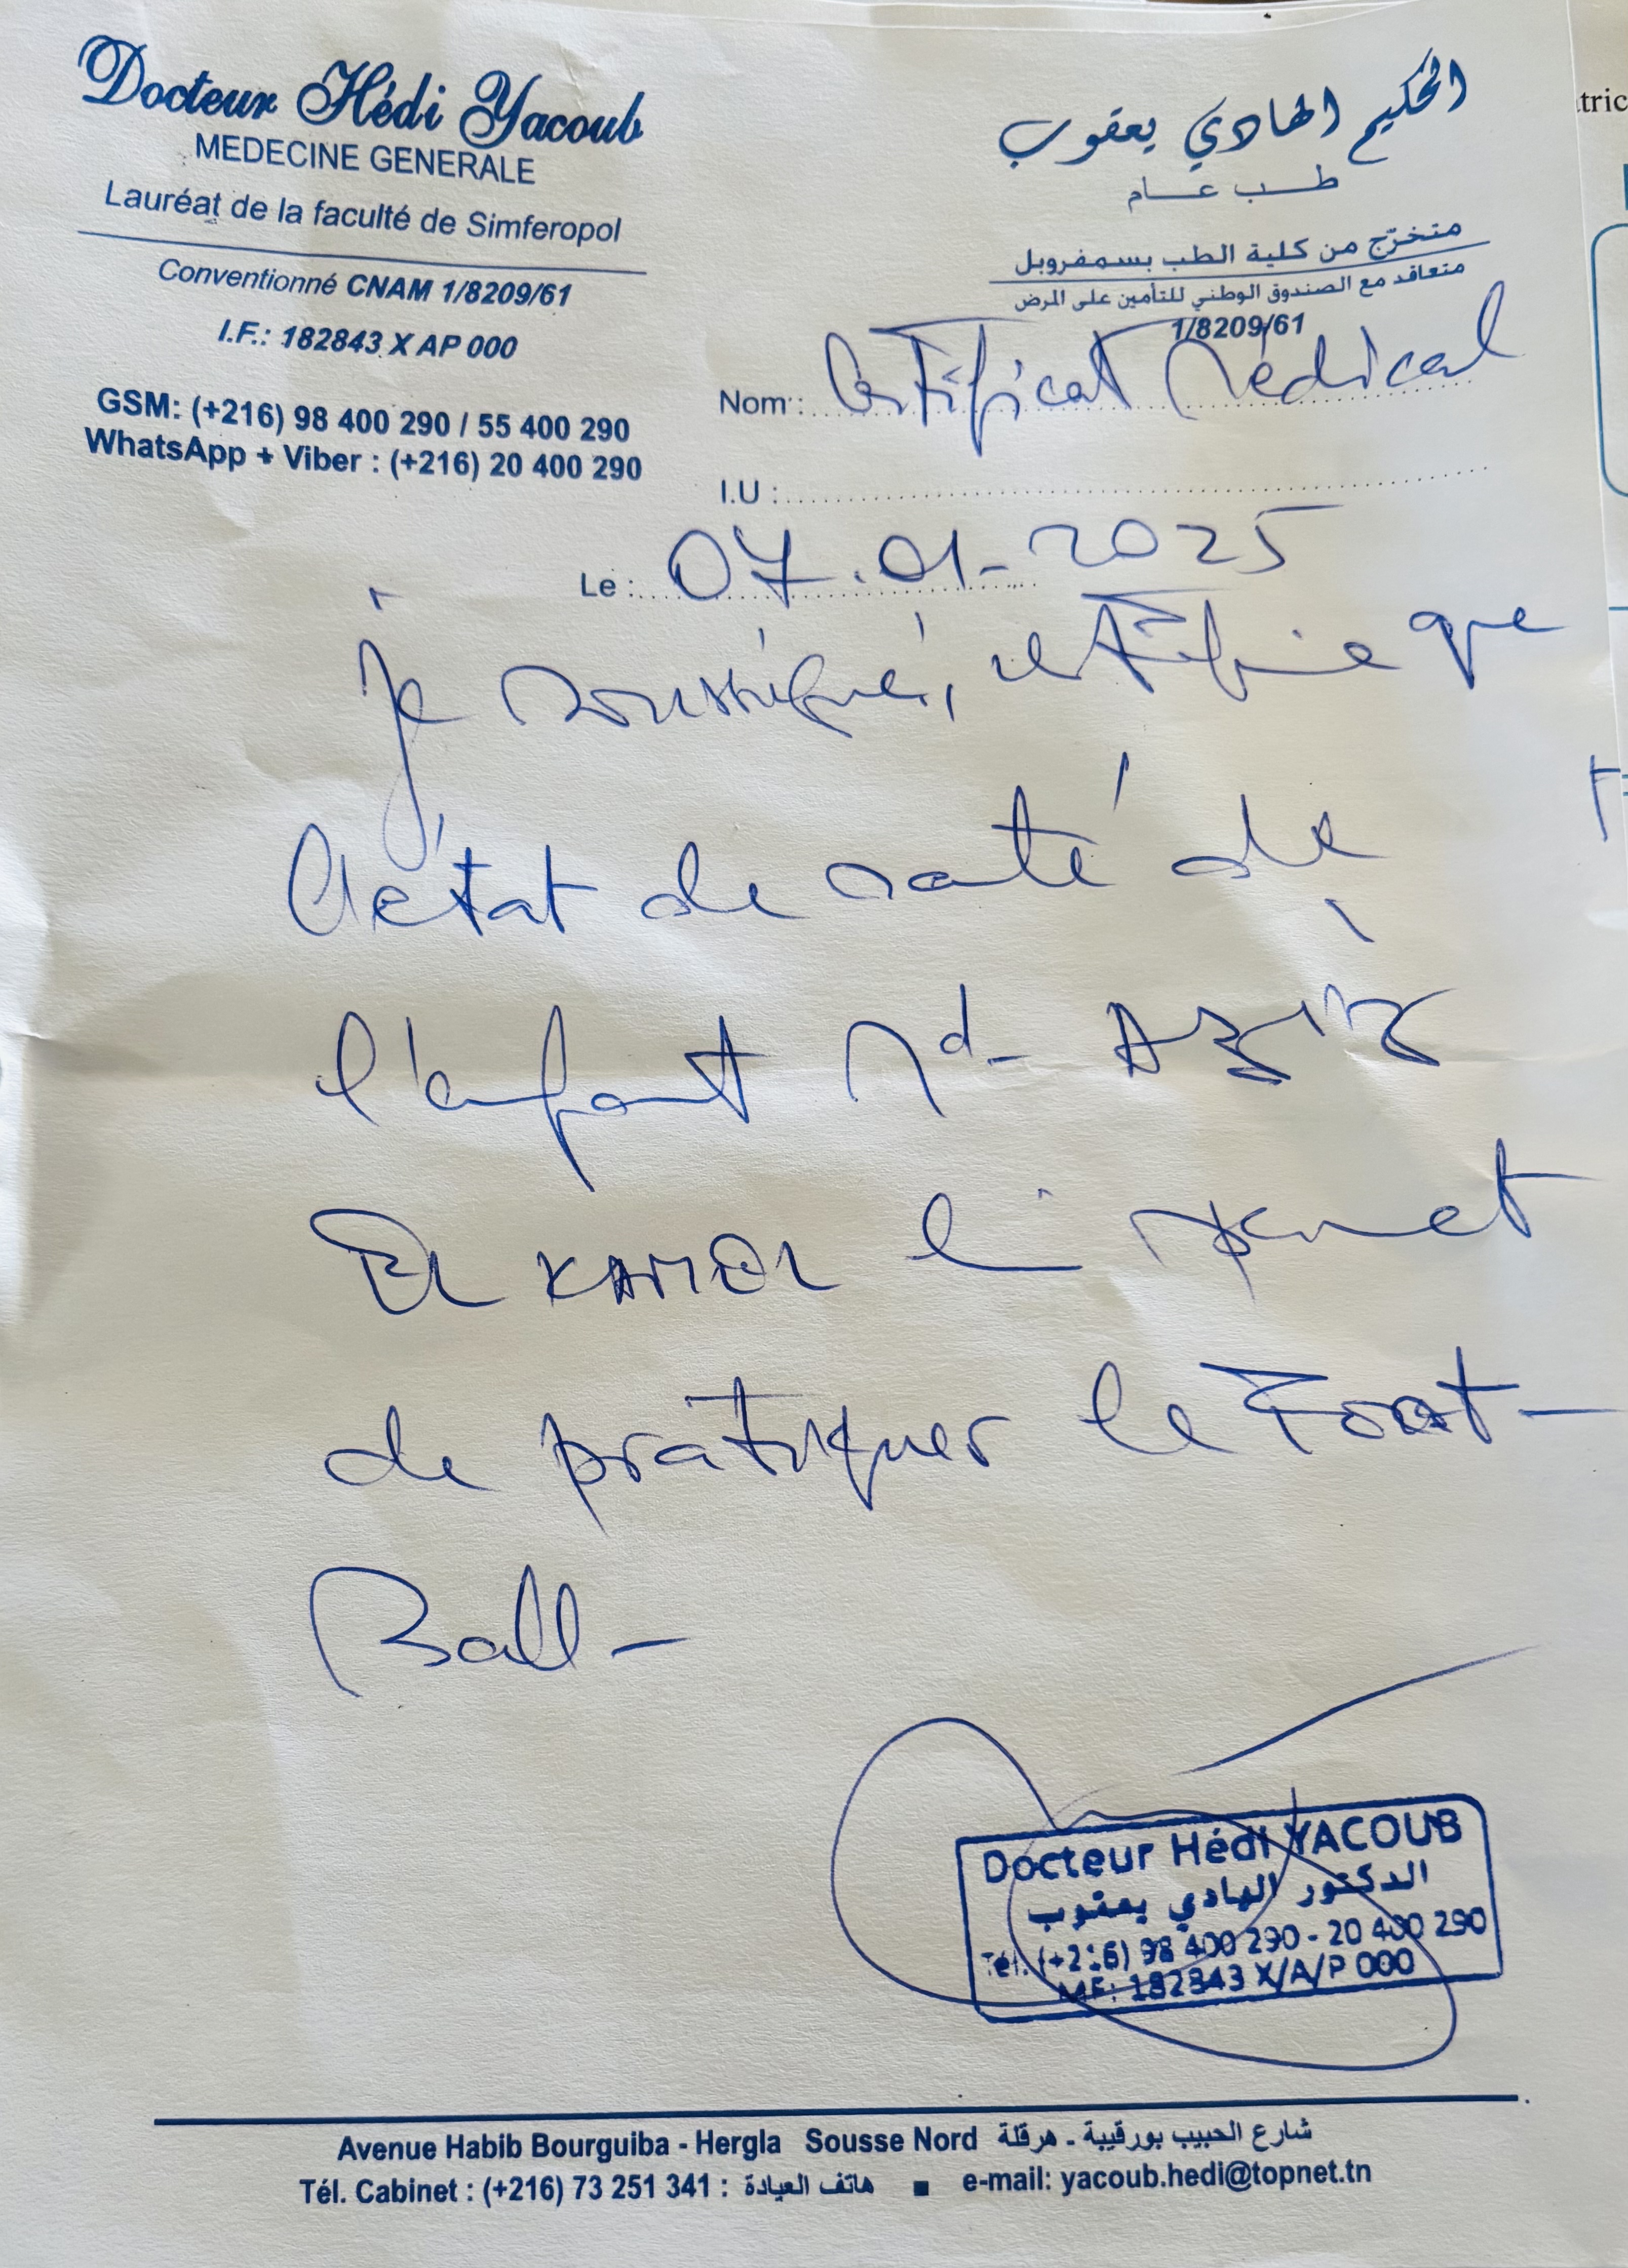 Docteur Hédi Yacoub
MEDECINE GENERALE
Lauréat de la faculté de Simferopol
Conventionné CNAM 1/8209/61
I.F.: 182843 X AP 000
GSM: (+216) 98 400 290 / 55 400 290
WhatsApp + Viber : (+216) 20 400 290
الحكيم الهادي يعقوب
طـــب عـــام
متخرّج من كلية الطب بسمفروبل
متعاقد مع الصندوق الوطني للتأمين على المرض
1/8209/61
Nom : Certificat Médical
I.U :
Le : 07.01-2025
je soussigné, certifie que
l'état de santé de
l'enfant Md- AZIZ
EL KAMEL lui permet
de pratiquer le Foot-
Ball-
Docteur Hédi YACOUB
الدكتور الهادي يعقوب
Tél. (+216) 98 400 290 - 20 400 290
MF: 182843 X/A/P 000
Avenue Habib Bourguiba - Hergla Sousse Nord شارع الحبيب بورقيبة - هرقلة
Tél. Cabinet : (+216) 73 251 341 : هاتف العيادة ■ e-mail: yacoub.hedi@topnet.tn